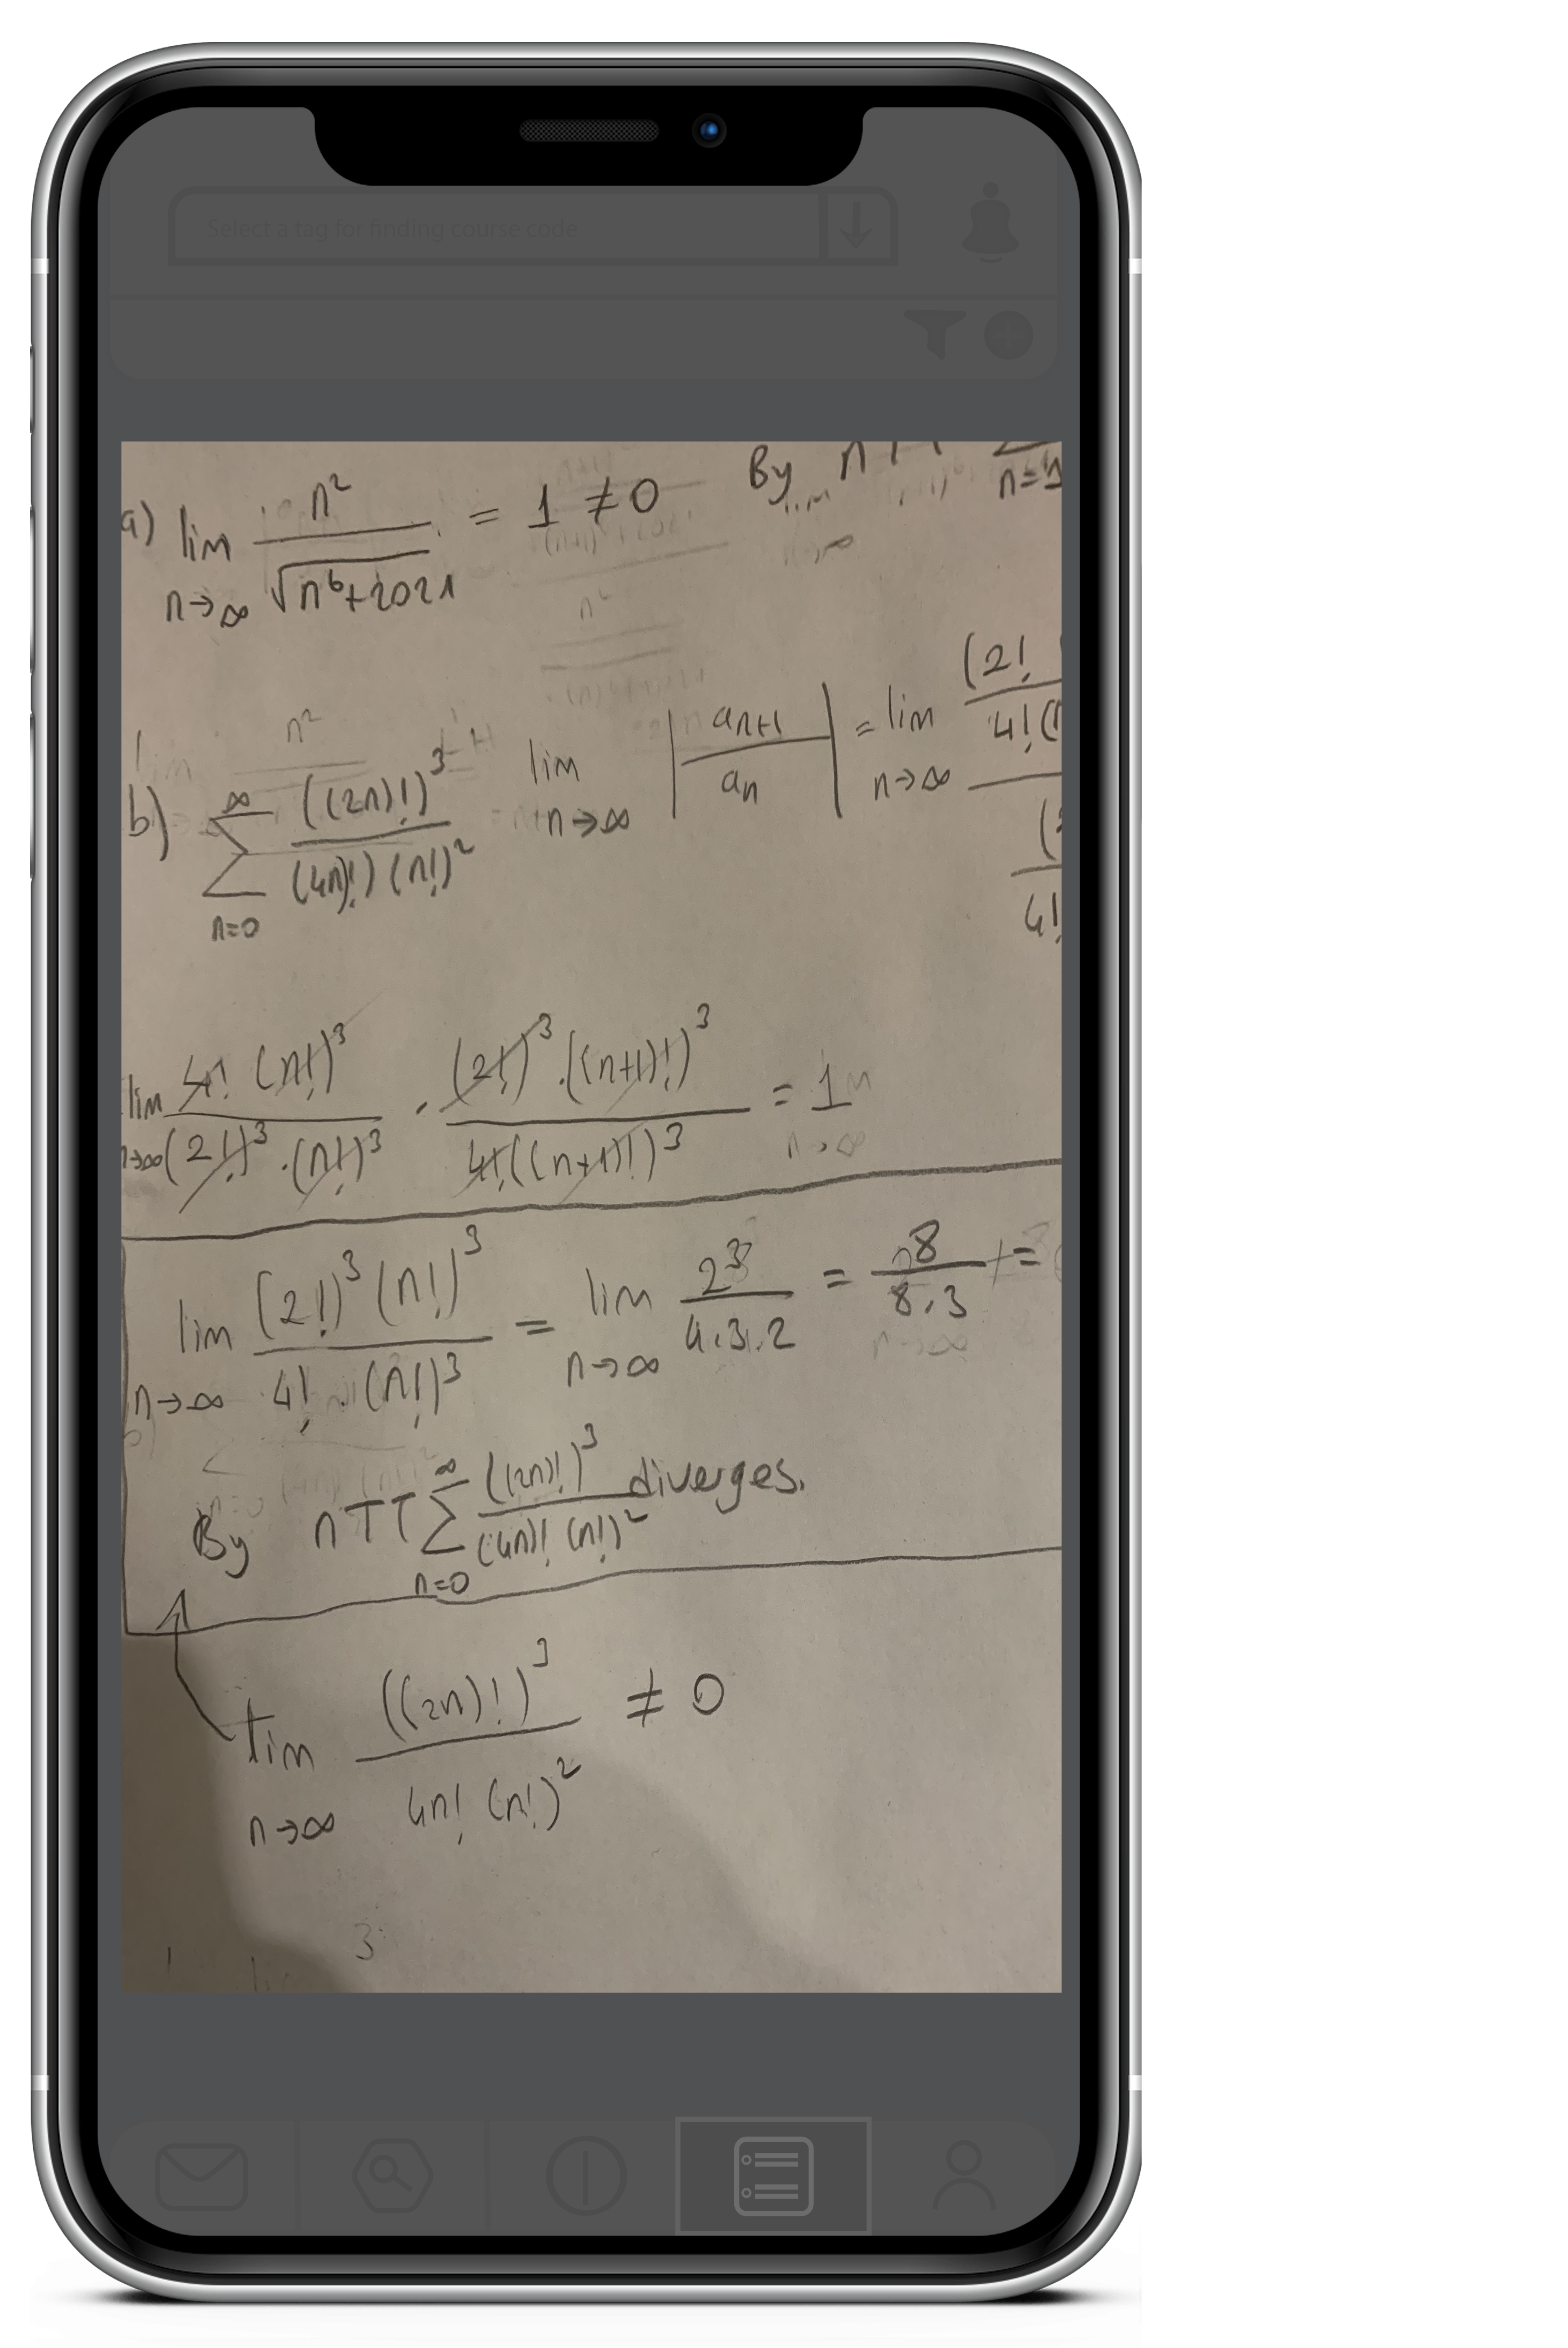 Select a tag for finding course code
a) lim n→∞ n² / √(n⁶+2021) = 1 ≠ 0 By n
n=1
b) ∑ n=0 ∞ ((2n)!)³ / ((4n)!) (n!)² lim n→∞ | aₙ₊₁ / aₙ | = lim n→∞ (2! / 4!
lim n→∞ 4! (n!)³ / (2!)³ · (n!)³ · (2!)³ · ((n+1)!)³ / 4! ((n+1)!)³ = 1
lim n→∞ (2!)³ (n!)³ / 4! · (n!)³ = lim n→∞ 2³ / 4.3.2 = 8 / 8.3 =
By nTT ∑ n=0 ∞ ((2n)!)³ / (4n)! (n!)² diverges.
lim n→∞ ((2n)!)³ / 4n! (n!)² ≠ 0
3